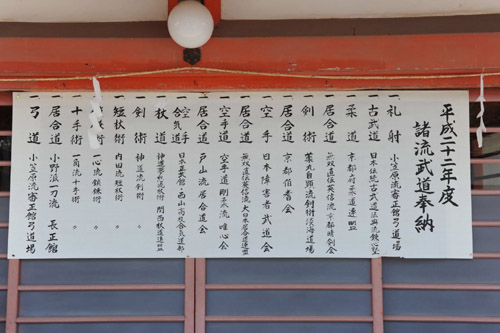 平成二十二年度
諸流武道奉納
一 礼射 小笠原流審正館弓道場
一 古武道 日本伝統古武道
一 柔道 京都府柔道連盟
一 居合道 無双直伝英信流京都時剣会
一 剣術 薬丸自顕流剣術淡海道場
一 居合道 京都伯耆会
一 空手 日本障害者武道会
一 居合道 無双直伝英信流大日本居合道連盟
一 空手道 空手道剛柔流唯心会
一 居合道 戸山流居合道会
一 空手 合気道 日本正武館 西山高校合気道部
一 杖道 神道夢想流杖術 関西杖道連盟
一 剣術 神道流剣術 〃
一 短杖術 内田流短杖術 〃
術 一心流鎖鎌術 〃
一 十手術 一角流十手術 〃
一 居合道 小野派一刀流 長正館
一 弓道 小笠原流審正館弓道場